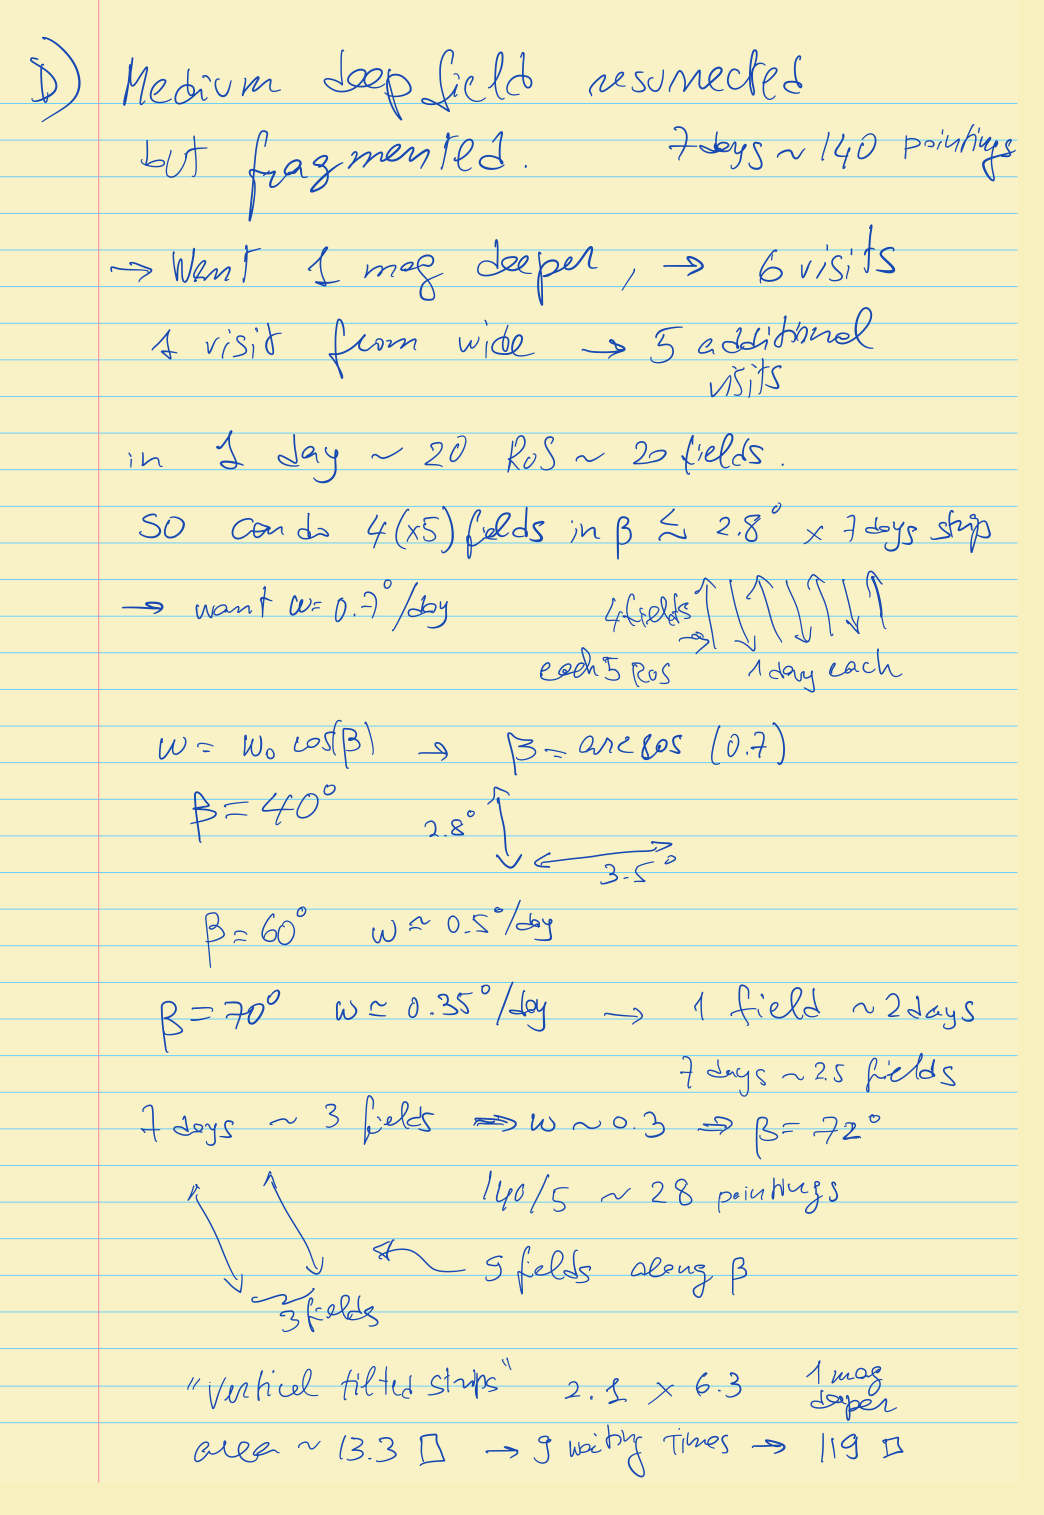 D) Medium deep field resurrected
but fragmented.
7 days ~ 140 pointings
→ Want 1 mag deeper, → 6 visits
1 visit from wide → 5 additional
visits
in 1 day ~ 20 ROS ~ 20 fields.
SO can do 4(x5) fields in β ≲ 2.8° x 7 days strip
→ want ω = 0.7°/day
4 fields
each 5 ROS
1 day each
ω = ω₀ cos(β) → β = arccos (0.7)
β = 40°
2.8°
3.5°
β = 60° ω ≃ 0.5°/day
β = 70° ω ≃ 0.35°/day → 1 field ~ 2 days
7 days ~ 2.5 fields
7 days ~ 3 fields ⇒ ω ~ 0.3 ⇒ β = 72°
140/5 ~ 28 pointings
9 fields along β
3 fields
"Vertical tilted strips" 2.1 x 6.3
1 mag
deeper
area ~ 13.3 □ → 9 waiting times → 119 □